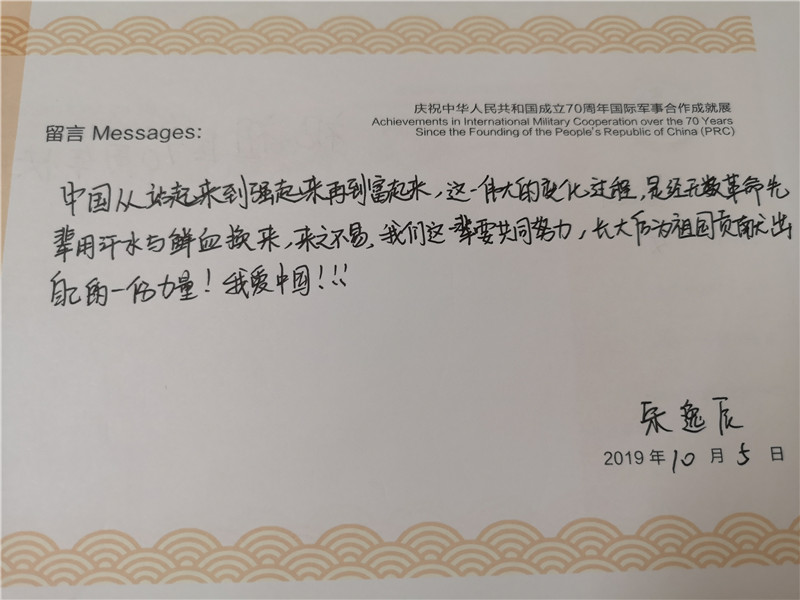 庆祝中华人民共和国成立70周年国际军事合作成就展
Achievements in International Military Cooperation over the 70 Years
Since the Founding of the People's Republic of China (PRC)
留言 Messages:
中国从站起来到强起来再到富起来，这一伟大的变化过程，是经无数革命先
辈用汗水与鲜血换来，来之不易，我们这一辈要共同努力，长大后为祖国贡献出
自己的一份力量！我爱中国！！！
乐逸辰
2019年10月5日